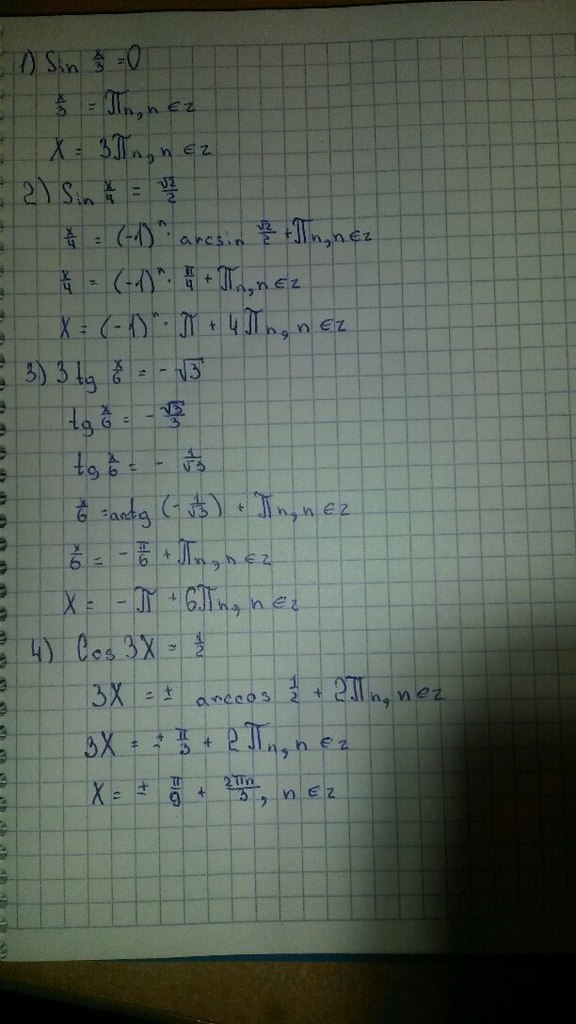 1) Sin x/3 = 0
x/3 = πn, n ∈ z
X = 3πn, n ∈ z
2) Sin x/4 = √2/2
x/4 = (-1)ⁿ · arcsin √2/2 + πn, n ∈ z
x/4 = (-1)ⁿ · π/4 + πn, n ∈ z
X = (-1)ⁿ · π + 4πn, n ∈ z
3) 3 tg x/6 = - √3
tg x/6 = - √3/3
tg x/6 = - 1/√3
x/6 = arctg (- 1/√3) + πn, n ∈ z
x/6 = - π/6 + πn, n ∈ z
X = - π + 6πn, n ∈ z
4) Cos 3X = 1/2
3X = ± arccos 1/2 + 2πn, n ∈ z
3X = ± π/3 + 2πn, n ∈ z
X = ± π/9 + 2πn/3, n ∈ z